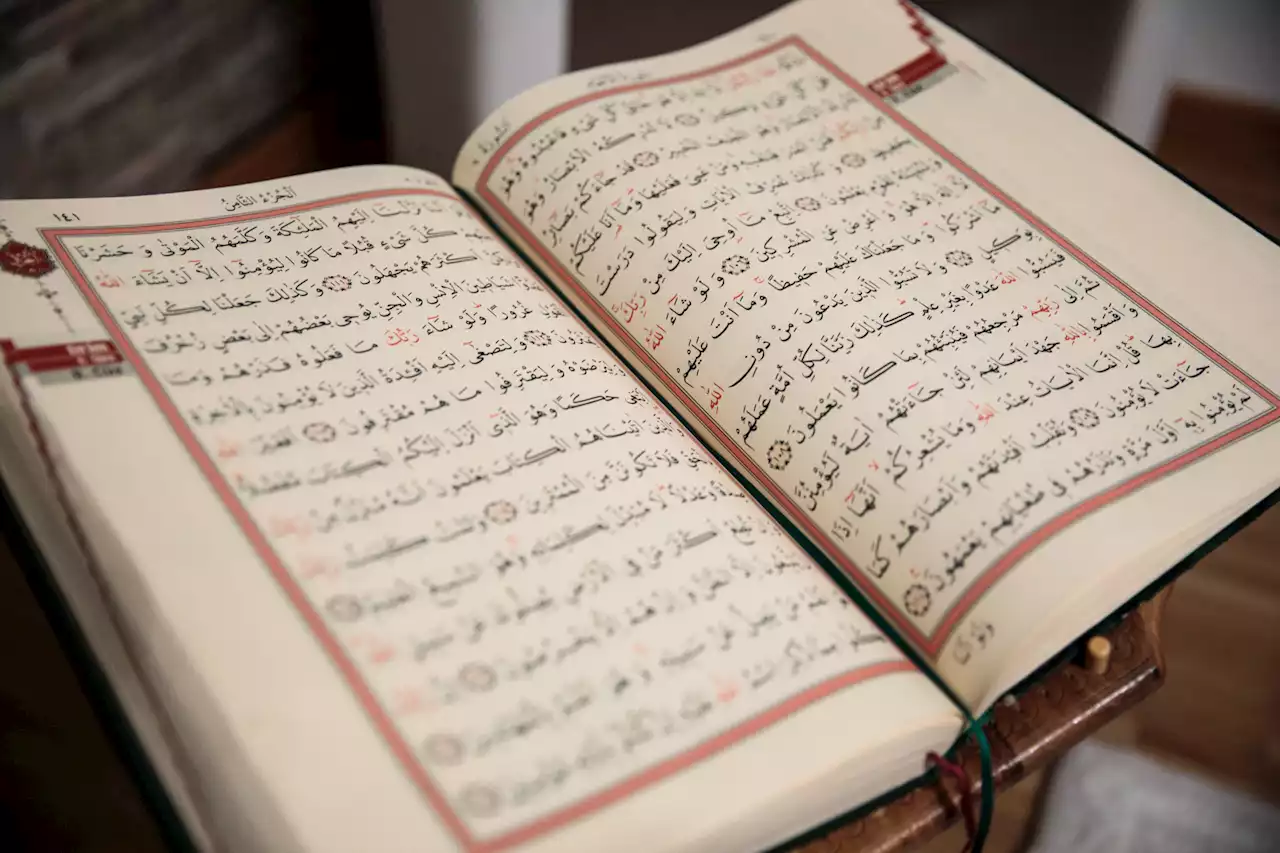 خَالِقُ كُلِّ شَيْءٍ فَاعْبُدُوهُ وَهُوَ
عَلٰى كُلِّ شَيْءٍ وَكِيلٌ لَا تُدْرِكُهُ الْاَبْصَارُ وَهُوَ
يُدْرِكُ الْاَبْصَارَ وَهُوَ اللَّطِيفُ الْخَبِيرُ قَدْ جَاءَكُمْ بَصَائِرُ
مِنْ رَبِّكُمْ فَمَنْ اَبْصَرَ فَلِنَفْسِهِ وَمَنْ عَمِيَ فَعَلَيْهَا وَمَا اَنَا عَلَيْكُمْ
بِحَفِيظٍ وَكَذٰلِكَ نُصَرِّفُ الْاٰيَاتِ وَلِيَقُولُوا دَرَسْتَ
وَلِنُبَيِّنَهُ لِقَوْمٍ يَعْلَمُونَ اِتَّبِعْ مَا اُوحِيَ اِلَيْكَ مِنْ رَبِّكَ
لَا اِلٰهَ اِلَّا هُوَ وَاَعْرِضْ عَنِ الْمُشْرِكِينَ وَلَوْ شَاءَ اللّٰهُ
مَا اَشْرَكُوا وَمَا جَعَلْنَاكَ عَلَيْهِمْ حَفِيظًا وَمَا اَنْتَ عَلَيْهِمْ
بِوَكِيلٍ وَلَا تَسُبُّوا الَّذِينَ يَدْعُونَ مِنْ دُونِ اللّٰهِ
فَيَسُبُّوا اللّٰهَ عَدْوًا بِغَيْرِ عِلْمٍ كَذٰلِكَ زَيَّنَّا لِكُلِّ اُمَّةٍ عَمَلَهُمْ
ثُمَّ اِلٰى رَبِّهِمْ مَرْجِعُهُمْ فَيُنَبِّئُهُمْ بِمَا كَانُوا يَعْمَلُونَ ١٠٨
وَاَقْسَمُوا بِاللّٰهِ جَهْدَ اَيْمَانِهِمْ لَئِنْ جَاءَتْهُمْ اٰيَةٌ لَيُؤْمِنُنَّ
بِهَا قُلْ اِنَّمَا الْاٰيَاتُ عِنْدَ اللّٰهِ وَمَا يُشْعِرُكُمْ اَنَّهَا اِذَا
جَاءَتْ لَا يُؤْمِنُونَ ١٠٩ وَنُقَلِّبُ اَفْـِٔدَتَهُمْ وَاَبْصَارَهُمْ كَمَا
لَمْ يُؤْمِنُوا بِهِ اَوَّلَ مَرَّةٍ وَنَذَرُهُمْ فِي طُغْيَانِهِمْ يَعْمَهُونَ ١١٠
وَلَوْ اَنَّنَا
اَلْجُزْءُ الثَّامِنُ
١٤١
نَزَّلْنَا اِلَيْهِمُ الْمَلٰئِكَةَ وَكَلَّمَهُمُ الْمَوْتٰى وَحَشَرْنَا
عَلَيْهِمْ كُلَّ شَيْءٍ قُبُلًا مَا كَانُوا لِيُؤْمِنُوا اِلَّا اَنْ يَشَاءَ اللّٰهُ
اَكْثَرَهُمْ يَجْهَلُونَ ١١١ وَكَذٰلِكَ جَعَلْنَا لِكُلِّ نَبِيٍّ
شَيَاطِينَ الْاِنْسِ وَالْجِنِّ يُوحِي بَعْضُهُمْ اِلٰى بَعْضٍ زُخْرُفَ
الْقَوْلِ غُرُورًا وَلَوْ شَاءَ رَبُّكَ مَا فَعَلُوهُ فَذَرْهُمْ وَمَا
يَفْتَرُونَ وَلِتَصْغٰى اِلَيْهِ اَفْـِٔدَةُ الَّذِينَ لَا يُؤْمِنُونَ بِالْاٰخِرَةِ
وَلِيَرْضَوْهُ وَلِيَقْتَرِفُوا مَا هُمْ مُقْتَرِفُونَ اَفَغَيْرَ
حَكَمًا وَهُوَ الَّذِي اَنْزَلَ اِلَيْكُمُ الْكِتَابَ مُفَصَّلًا
وَالَّذِينَ اٰتَيْنَاهُمُ الْكِتَابَ يَعْلَمُونَ اَنَّهُ مُنَزَّلٌ مِنْ
فَلَا تَكُونَنَّ مِنَ الْمُمْتَرِينَ وَتَمَّتْ كَلِمَتُ
وَعَدْلًا لَا مُبَدِّلَ لِكَلِمَاتِهِ وَهُوَ السَّمِيعُ الْعَلِيمُ
تُطِعْ اَكْثَرَ مَنْ فِي الْاَرْضِ يُضِلُّوكَ عَنْ سَبِيلِ